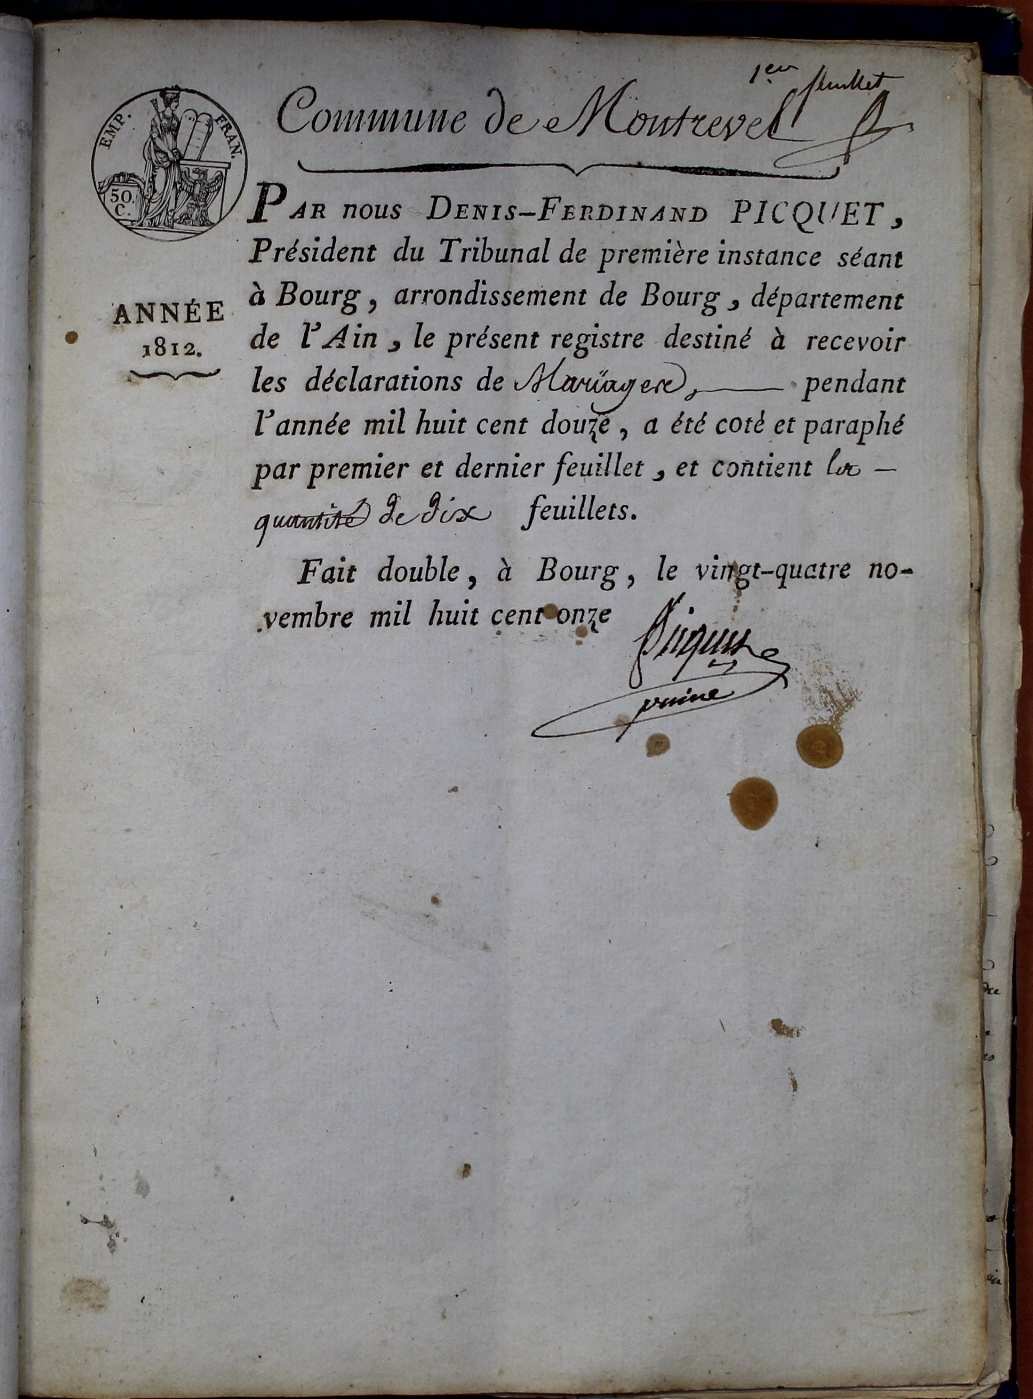 1er feuillet
Commune de Montrevel
EMP. FRAN.
50. C.
PAR nous DENIS-FERDINAND PICQUET,
Président du Tribunal de première instance séant
à Bourg, arrondissement de Bourg, département
ANNÉE
1812.
de l'Ain, le présent registre destiné à recevoir
les déclarations de Mariages, pendant
l'année mil huit cent douze, a été coté et paraphé
par premier et dernier feuillet, et contient la
quantité de dix feuillets.
Fait double, à Bourg, le vingt-quatre no-
vembre mil huit cent onze
Picquet